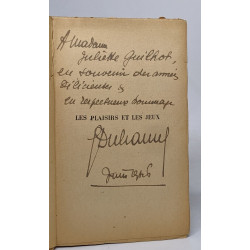 A Madame
Juliette Guilhot,
en souvenir des années
délicieuses &
en respectueux hommage
LES PLAISIRS ET LES JEUX
GDuhamel